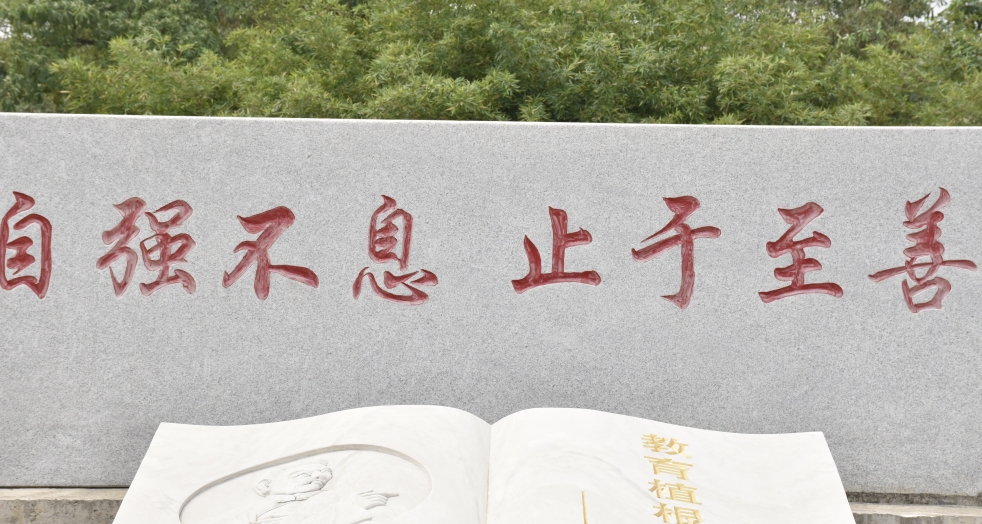 自强不息 止于至善
教育植根